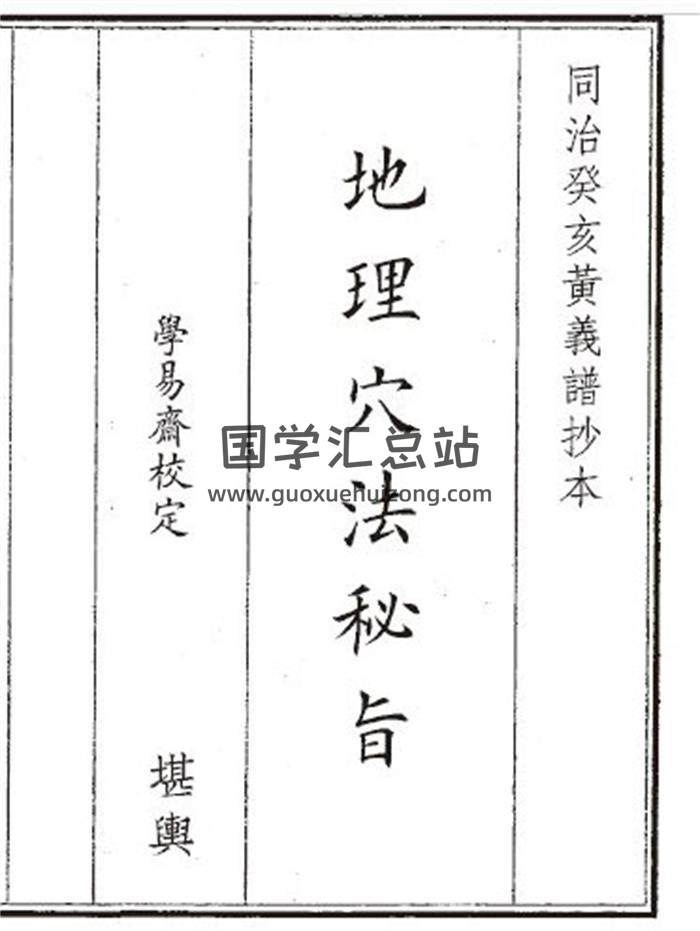 同治癸亥黃義譜抄本
地理穴法秘旨
學易齋校定
堪輿
国学汇总站
www.guoxuehuizong.com